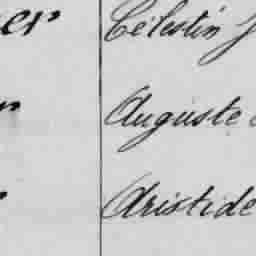 er Célestin J
r Auguste
r Aristide